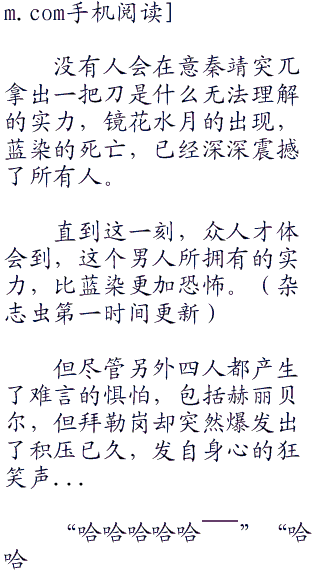 m.com手机阅读]
没有人会在意秦靖突兀
拿出一把刀是什么无法理解
的实力，镜花水月的出现，
蓝染的死亡，已经深深震撼
了所有人。
直到这一刻，众人才体
会到，这个男人所拥有的实
力，比蓝染更加恐怖。（杂
志虫第一时间更新）
但尽管另外四人都产生
了难言的惧怕，包括赫丽贝
尔，但拜勒岗却突然爆发出
了积压已久，发自身心的狂
笑声...
“哈哈哈哈哈——” “哈
哈